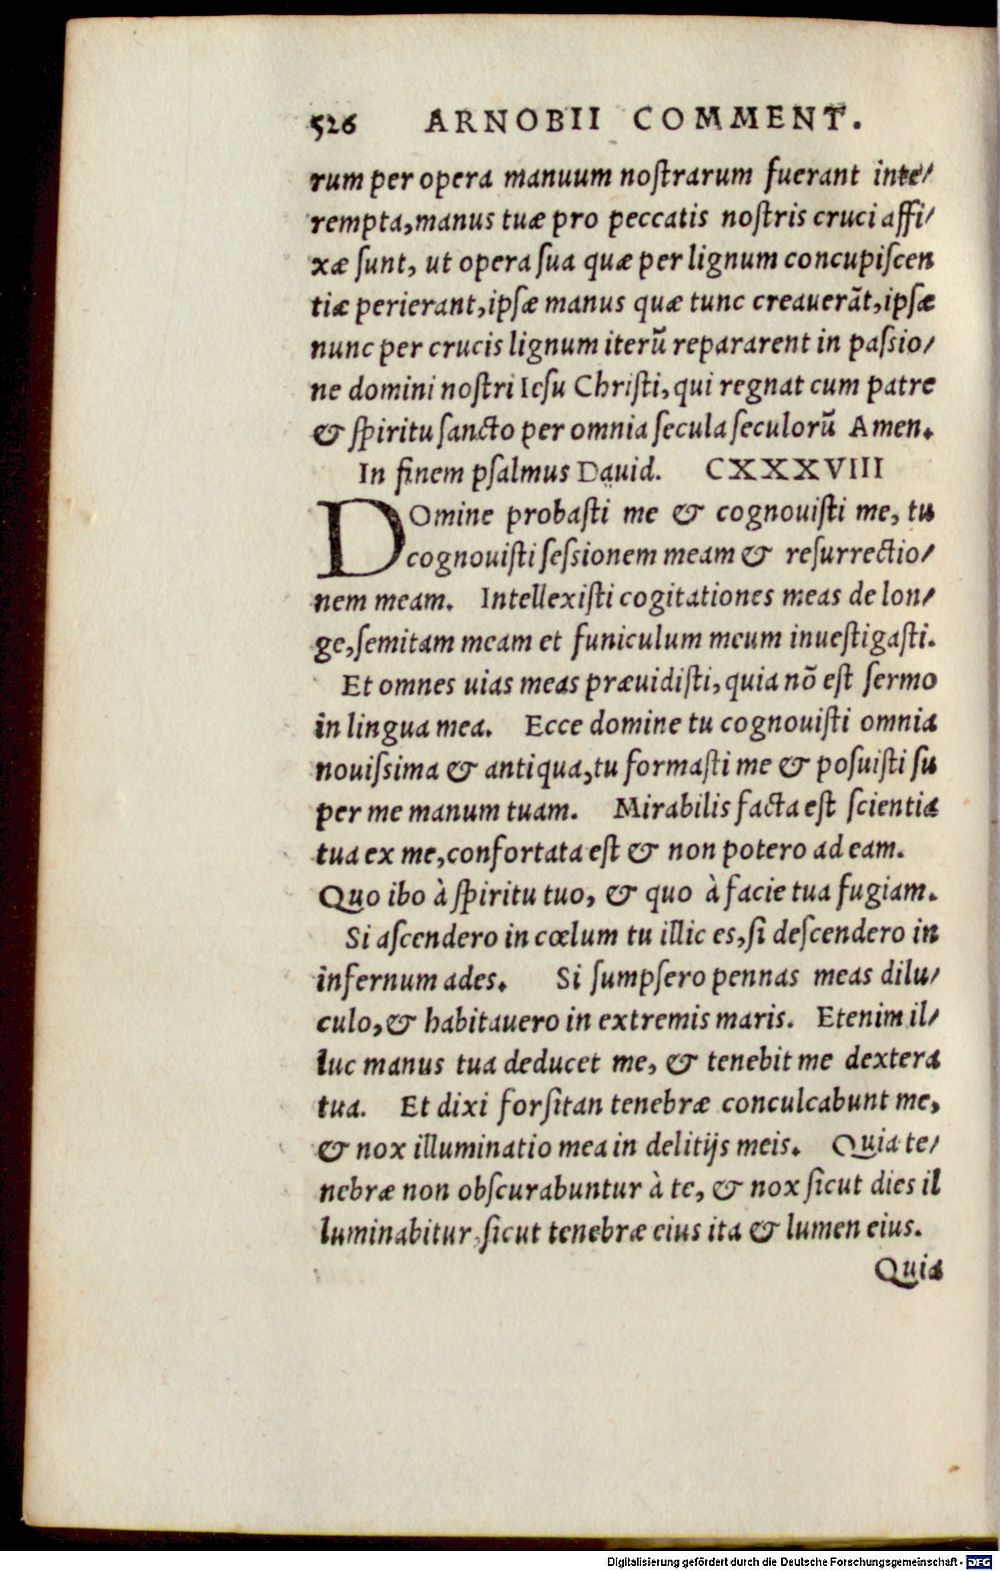 526 ARNOBII COMMENT.
rum per opera manuum noſtrarum fuerant inte/
rempta, manus tuæ pro peccatis noſtris cruci affi/
xæ ſunt, ut opera ſua quæ per lignum concupiſcen
tiæ perierant, ipſæ manus quæ tunc creauerãt, ipſæ
nunc per crucis lignum iterũ repararent in paſsio/
ne domini noſtri Ieſu Chriſti, qui regnat cum patre
& ſpiritu ſancto per omnia ſecula ſeculorũ Amen.
In finem pſalmus Dauid. CXXXVIII
DOmine probaſti me & cognouiſti me, tu
cognouiſti ſeſsionem meam & reſurrectio/
nem meam. Intellexiſti cogitationes meas de lon/
ge, ſemitam meam et funiculum meum inueſtigaſti.
Et omnes uias meas præuidiſti, quia nõ eſt ſermo
in lingua mea. Ecce domine tu cognouiſti omnia
nouiſsima & antiqua, tu formaſti me & poſuiſti ſu
per me manum tuam. Mirabilis facta eſt ſcientia
tua ex me, confortata eſt & non potero ad eam.
Quo ibo à ſpiritu tuo, & quo à facie tua fugiam.
Si aſcendero in cœlum tu illic es, ſi deſcendero in
infernum ades. Si ſumpſero pennas meas dilu/
culo, & habitauero in extremis maris. Etenim il/
luc manus tua deducet me, & tenebit me dextera
tua. Et dixi forſitan tenebræ conculcabunt me,
& nox illuminatio mea in delitijs meis. Quia te/
nebræ non obſcurabuntur à te, & nox ſicut dies il
luminabitur, ſicut tenebræ eius ita & lumen eius.
Quia
Digitalisierung gefördert durch die Deutsche Forschungsgemeinschaft - DFG